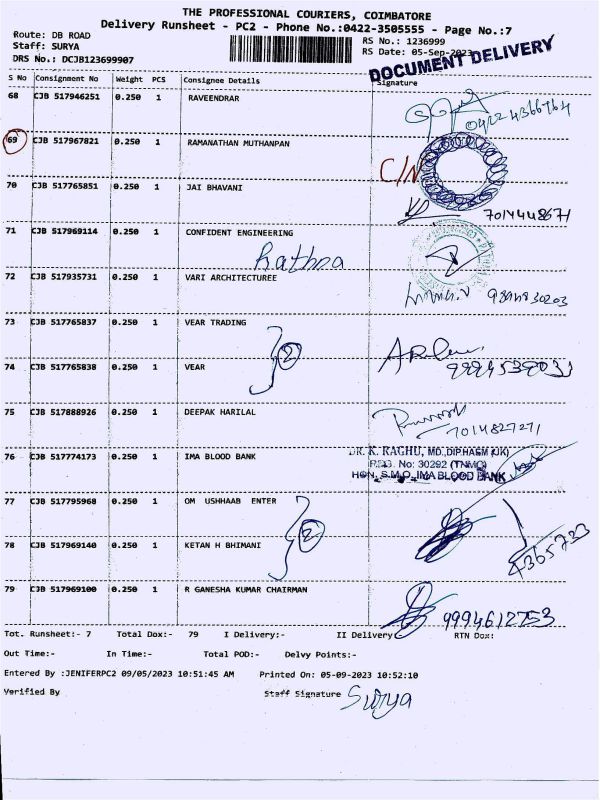 THE PROFESSIONAL COURIERS, COIMBATORE
Delivery Runsheet - PC2 - Phone No.:0422-3505555 - Page No.:7
Route: DB ROAD
RS No.: 1236999
Staff: SURYA
RS Date: 05-Sep-2023
DRS No.: DCJB123699907
DOCUMENT DELIVERY
S No Consignment No Weight PCS Consignee Details Signature
68 CJB 517946251 0.250 1 RAVEENDRAR
0422 4366764
69 CJB 517967821 0.250 1 RAMANATHAN MUTHANPAN
C/N
70 CJB 517765851 0.250 1 JAI BHAVANI
7014448671
71 CJB 517969114 0.250 1 CONFIDENT ENGINEERING
Rathna
72 CJB 517935731 0.250 1 VARI ARCHITECTUREE
73 CJB 517765837 0.250 1 VEAR TRADING
2
74 CJB 517765838 0.250 1 VEAR
75 CJB 517888926 0.250 1 DEEPAK HARILAL
7014827271
76 CJB 517774173 0.250 1 IMA BLOOD BANK
DR. K. RAGHU, MD.,DIP.HASM (UK)
REG. No: 30292 (TNMC)
HON. S.M.O. IMA BLOOD BANK
77 CJB 517795968 0.250 1 OM USHHAAB ENTER
2
78 CJB 517969140 0.250 1 KETAN H BHIMANI
4365733
79 CJB 517969100 0.250 1 R GANESHA KUMAR CHAIRMAN
9994612753
Tot. Runsheet:- 7 Total Dox:- 79 I Delivery:- II Delivery RTN Dox:
Out Time:- In Time:- Total POD:- Delvy Points:-
Entered By :JENIFERPC2 09/05/2023 10:51:45 AM Printed On: 05-09-2023 10:52:10
Verified By Staff Signature Surya